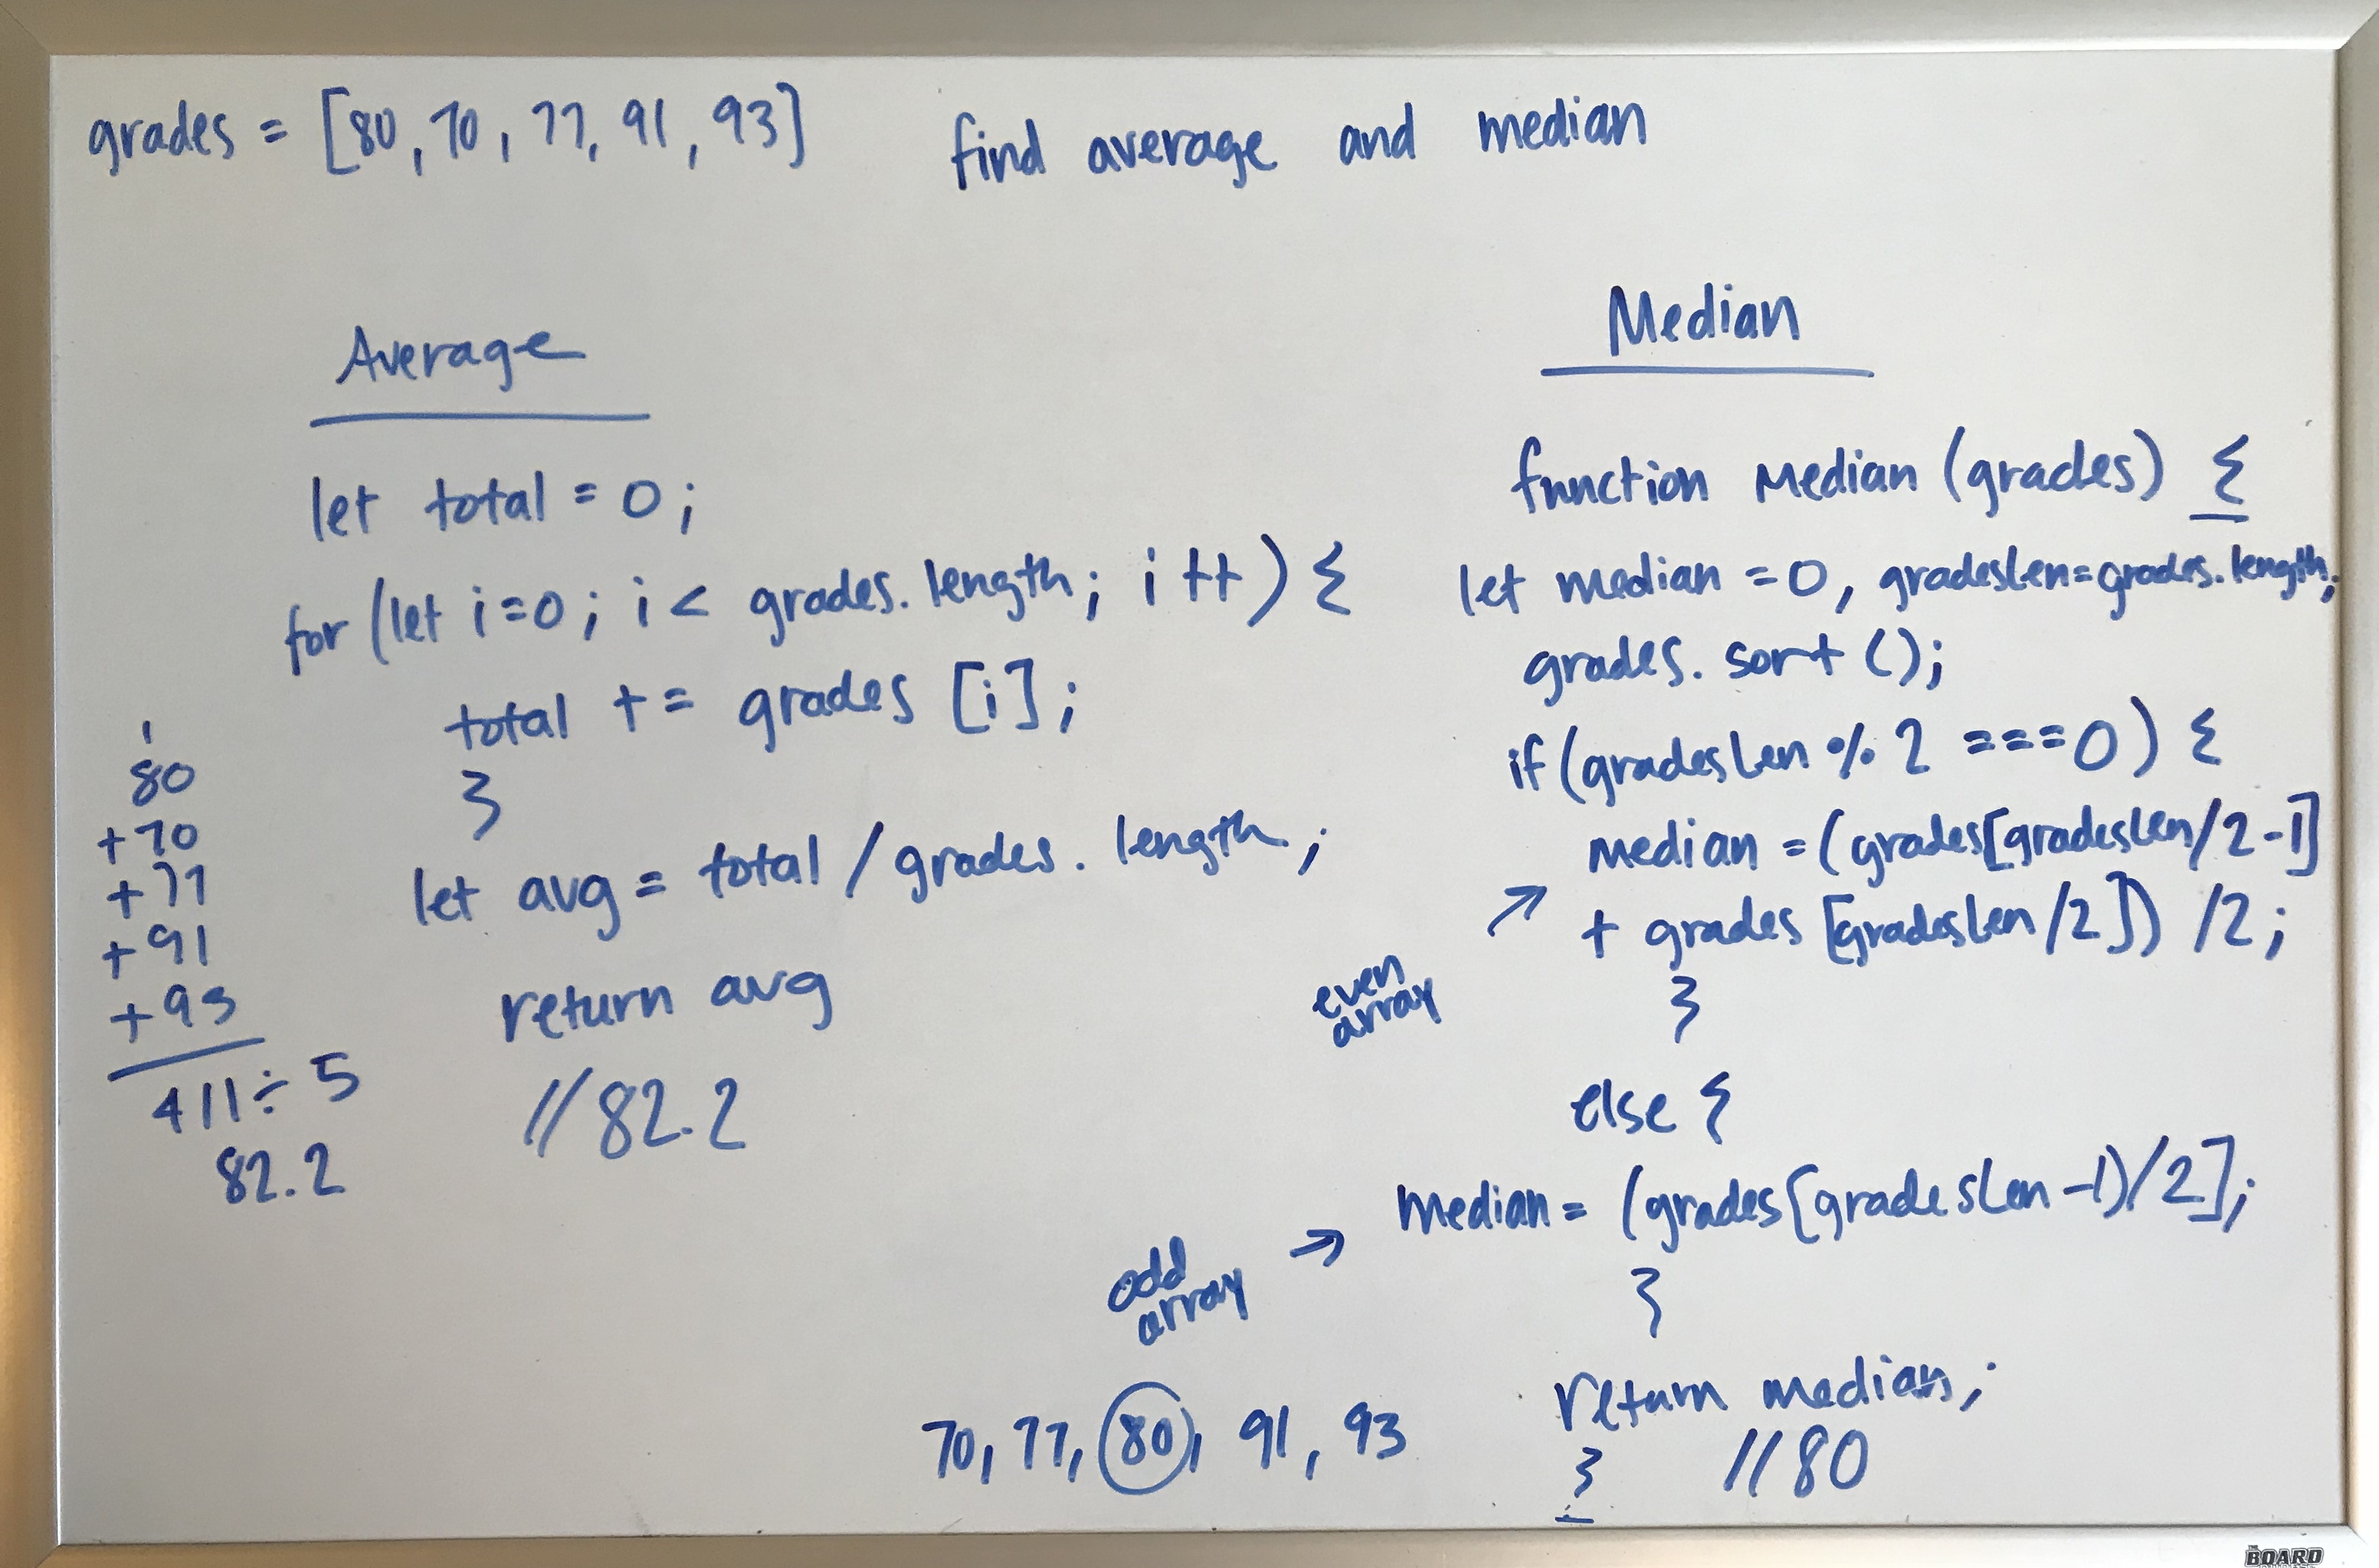 grades = [80, 70, 77, 91, 93] find average and median
Average
let total = 0;
for (let i=0; i < grades.length; i++) {
total += grades [i];
}
let avg = total / grades.length;
return avg
// 82.2
1
80
+70
+77
+91
+93
411 ÷ 5
82.2
Median
function Median (grades) {
let median = 0, gradeslen=grades.length;
grades.sort ();
if (gradeslen % 2 === 0) {
median = (grades[gradeslen/2-1]
+ grades [gradeslen/2]) /2;
}
even
array
→
else {
median = (grades[gradeslen-1)/2];
}
odd
array
→
return median;
} // 80
70, 77, 80, 91, 93
BOARD